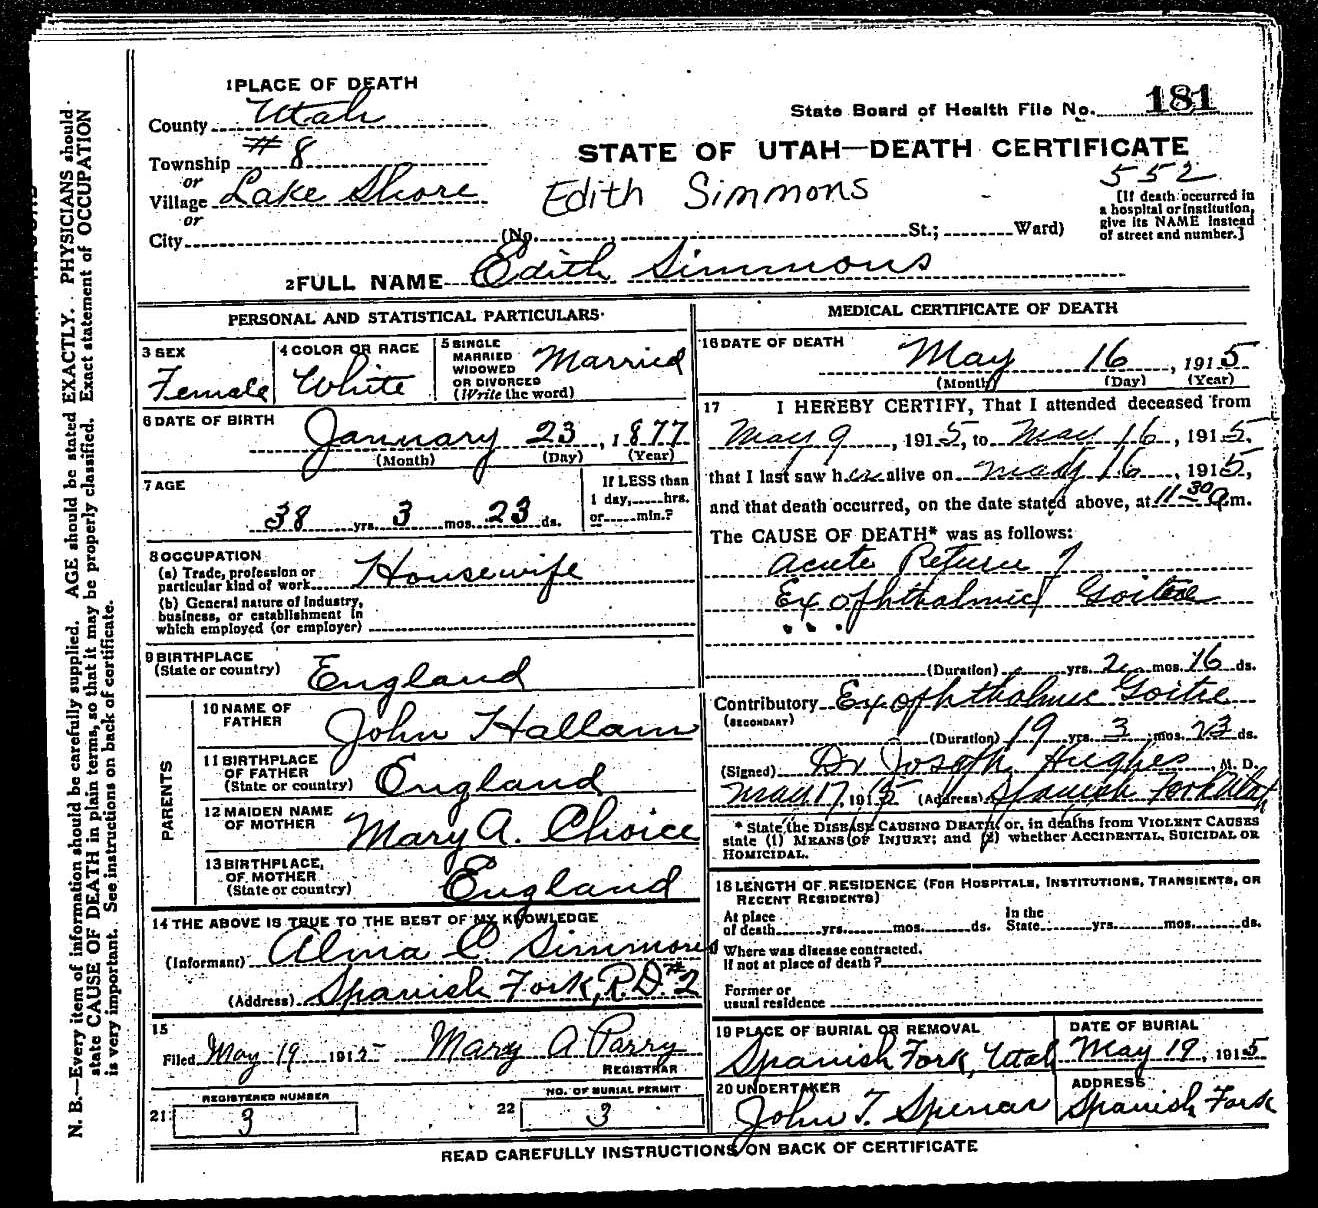 1 PLACE OF DEATH
County Utah
State Board of Health File No. 181
Township #8
or
STATE OF UTAH—DEATH CERTIFICATE
552
Village Lake Shore
Edith Simmons
or
[If death occurred in
a hospital or institution,
give its NAME instead
of street and number.]
City (No. St.; Ward)
2 FULL NAME Edith Simmons
PERSONAL AND STATISTICAL PARTICULARS
3 SEX
Female
4 COLOR OR RACE
White
5 SINGLE
MARRIED
WIDOWED
OR DIVORCED
(Write the word)
Married
6 DATE OF BIRTH
January 23, 1877
(Month) (Day) (Year)
7 AGE
38 yrs. 3 mos. 23 ds.
If LESS than
1 day, hrs.
or min.?
8 OCCUPATION
(a) Trade, profession or
particular kind of work Housewife
(b) General nature of industry,
business, or establishment in
which employed (or employer)
9 BIRTHPLACE
(State or country) England
PARENTS
10 NAME OF
FATHER John Hallam
11 BIRTHPLACE
OF FATHER
(State or country) England
12 MAIDEN NAME
OF MOTHER Mary A. Choice
13 BIRTHPLACE
OF MOTHER
(State or country) England
14 THE ABOVE IS TRUE TO THE BEST OF MY KNOWLEDGE
(Informant) Alma C. Simmons
(Address) Spanish Fork, R.D. #2
15
Filed May 19 1915 Mary A Parry
REGISTRAR
REGISTERED NUMBER
21 3
NO. OF BURIAL PERMIT
22 3
MEDICAL CERTIFICATE OF DEATH
16 DATE OF DEATH
May 16, 1915
(Month) (Day) (Year)
17 I HEREBY CERTIFY, That I attended deceased from
May 9, 1915, to May 16, 1915,
that I last saw her alive on May 16, 1915,
and that death occurred, on the date stated above, at 11 30 a.m.
The CAUSE OF DEATH* was as follows:
Acute
Exophthalmic Goitre
(Duration) yrs. 2 mos. 16 ds.
Contributory Exophthalmic Goitre
(SECONDARY)
(Duration) 19 yrs. 3 mos. 23 ds.
(Signed) Dr Joseph Hughes, M. D.
May 17, 1915 (Address) Spanish Fork Utah
* State the DISEASE CAUSING DEATH, or, in deaths from VIOLENT CAUSES
state (1) MEANS OF INJURY; and (2) whether ACCIDENTAL, SUICIDAL OR
HOMICIDAL.
18 LENGTH OF RESIDENCE (FOR HOSPITALS, INSTITUTIONS, TRANSIENTS, OR
RECENT RESIDENTS)
At place
of death yrs. mos. ds.
In the
State yrs. mos. ds.
Where was disease contracted.
If not at place of death?
Former or
usual residence
19 PLACE OF BURIAL OR REMOVAL
Spanish Fork, Utah
DATE OF BURIAL
May 19, 1915
20 UNDERTAKER
John T.
ADDRESS
Spanish Fork
READ CAREFULLY INSTRUCTIONS ON BACK OF CERTIFICATE
N. B.—Every item of information should be carefully supplied. AGE should be stated EXACTLY. PHYSICIANS should
state CAUSE OF DEATH in plain terms, so that it may be properly classified. Exact statement of OCCUPATION
is very important. See instructions on back of certificate.